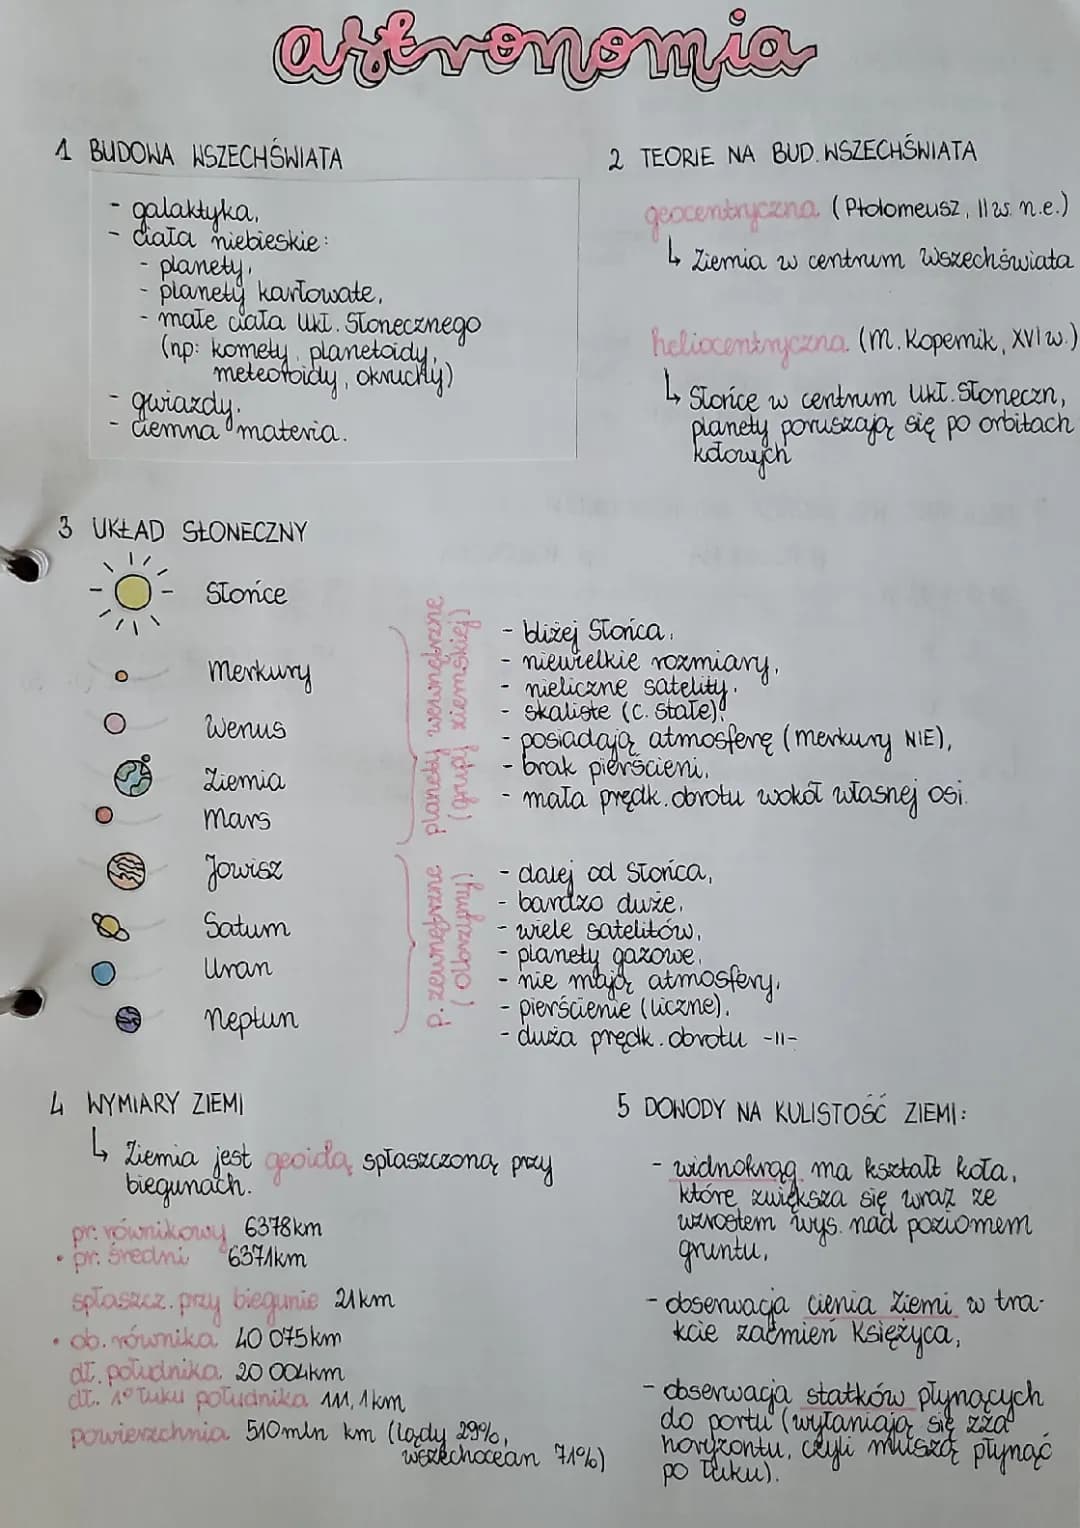 astronomia
1 BUDOWA WSZECHŚWIATA
- galaktyka,
- ciała niebieskie:
- planety,
- planety karłowate,
- małe ciała Ukł. Słonecznego
(np: komety, planetoidy,
meteoroidy, okruchy)
- gwiazdy.
- ciemna materia.
2 TEORIE NA BUD. WSZECHŚWIATA
geocentryczna (Ptolomeusz, II w. n.e.)
↳ Ziemia w centrum Wszechświata
heliocentryczna (M. Kopernik, XVI w.)
↳ Słońce w centrum Ukł. Słoneczn,
planety poruszają się po orbitach
kołowych
3 UKŁAD SŁONECZNY
Słońce
Merkury
Wenus
Ziemia
Mars
Jowisz
Saturn
Uran
Neptun
planety wewnętrzne
(grupy ziemskiej)
- bliżej Słońca,
- niewielkie rozmiary,
- nieliczne satelity.
- skaliste (c. stałe),
- posiadają atmosferę (merkury NIE),
- brak pierścieni,
- mała prędk. obrotu wokół własnej osi.
p. zewnętrzne
(olbrzymy)
- dalej od Słońca,
- bardzo duże,
- wiele satelitów,
- planety gazowe,
- nie mają atmosfery,
- pierścienie (liczne),
- duża prędk. obrotu -II-
4 WYMIARY ZIEMI
↳ Ziemia jest geoidą spłaszczoną przy
biegunach.
pr. równikowy 6378km
• pr. średni 6371km
spłaszcz. przy biegunie 21km
• ob. równika 40 075km
dł. południka 20 004km
dł. 1° łuku południka 111,1km
powierzchnia 510mln km (lądy 29%,
wszechocean 71%)
5 DOWODY NA KULISTOŚĆ ZIEMI:
- widnokrąg ma kształt koła,
które zwiększa się wraz ze
wzrostem wys. nad poziomem
gruntu,
- obserwacja cienia Ziemi w tra-
kcie zaćmień Księżyca,
- obserwacja statków płynących
do portu (wyłaniają się zza
horyzontu, czyli muszą płynąć
po łuku).